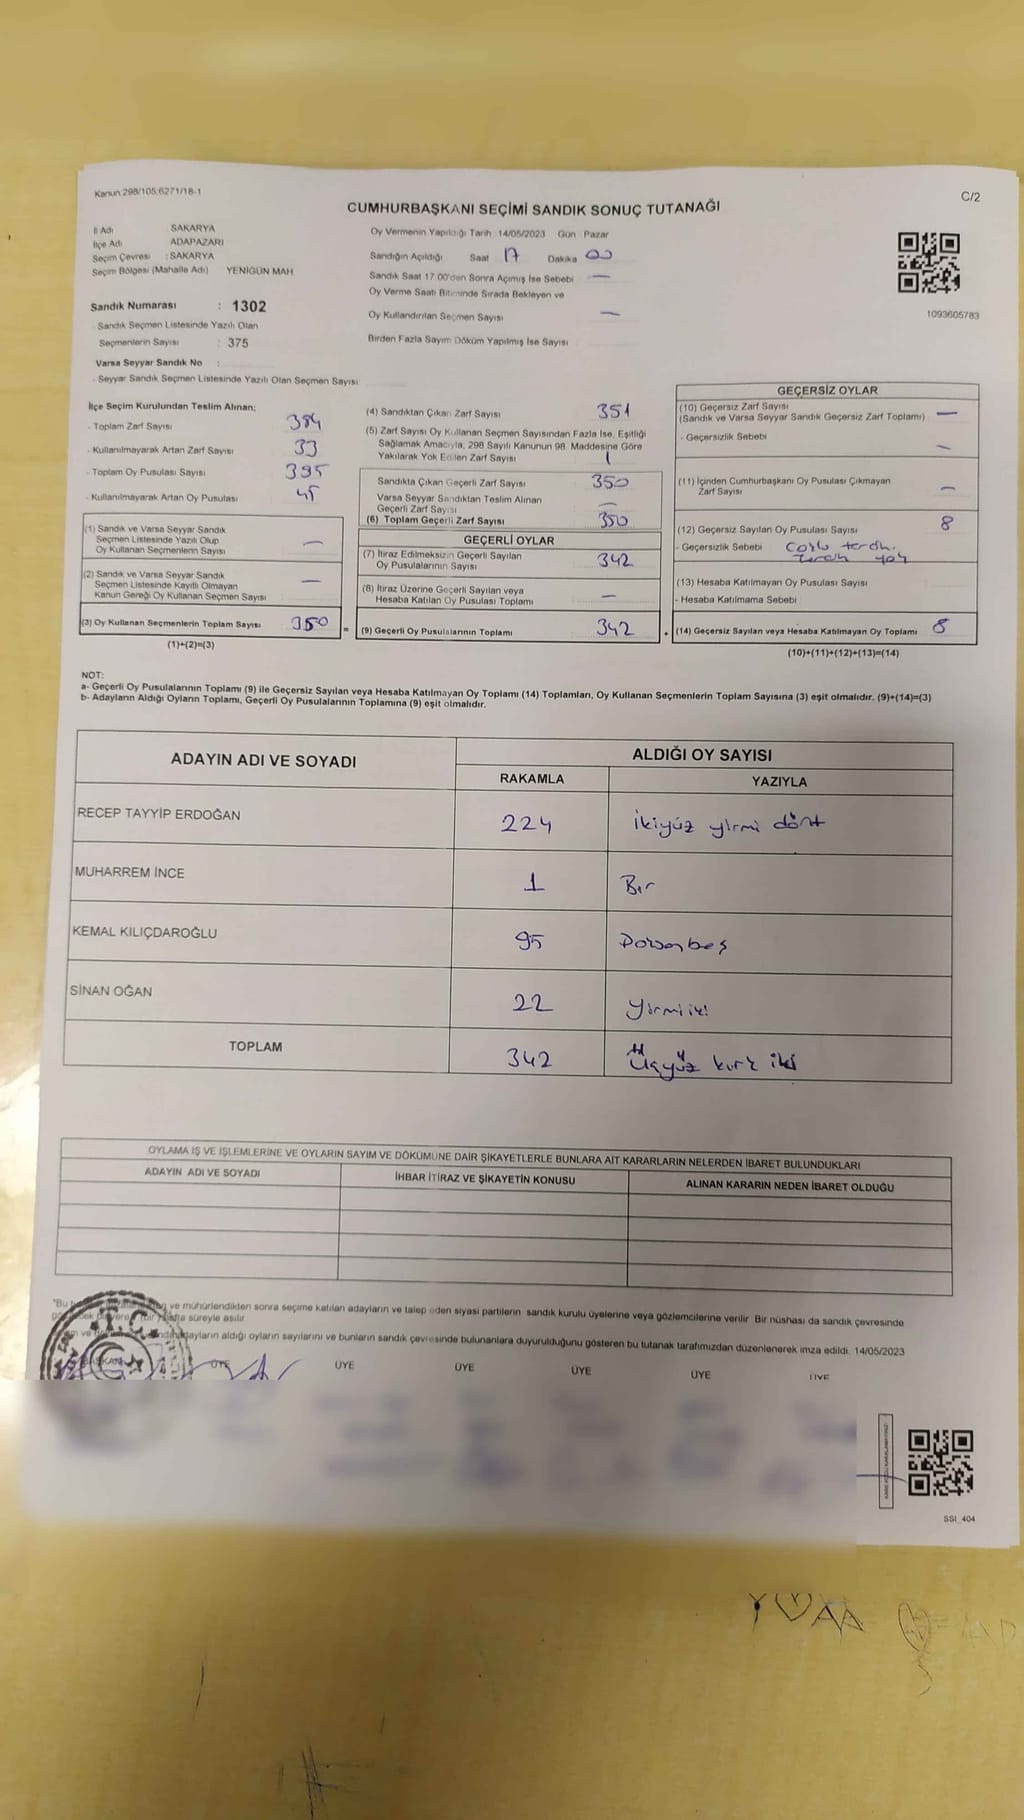 Kanun 298/105,6271/18-1
C/2
CUMHURBAŞKANI SEÇİMİ SANDIK SONUÇ TUTANAĞI
İl Adı SAKARYA
İlçe Adı ADAPAZARI
Seçim Çevresi : SAKARYA
Seçim Bölgesi (Mahalle Adı) YENİGÜN MAH
Sandık Numarası : 1302
- Sandık Seçmen Listesinde Yazılı Olan
Seçmenlerin Sayısı : 375
Varsa Seyyar Sandık No :
- Seyyar Sandık Seçmen Listesinde Yazılı Olan Seçmen Sayısı
Oy Vermenin Yapıldığı Tarih 14/05/2023 Gün Pazar
Sandığın Açıldığı Saat 17 Dakika 00
Sandık Saat 17.00'den Sonra Açımış İse Sebebi —
Oy Verme Saati Bitiminde Sırada Bekleyen ve
Oy Kullandırılan Seçmen Sayısı —
Birden Fazla Sayım Döküm Yapılmış İse Sayısı
1093605783
İlçe Seçim Kurulundan Teslim Alınan;
- Toplam Zarf Sayısı 384
- Kullanılmayarak Artan Zarf Sayısı 33
- Toplam Oy Pusulası Sayısı 395
- Kullanılmayarak Artan Oy Pusulası 45
(1) Sandık ve Varsa Seyyar Sandık
Seçmen Listesinde Yazılı Olup
Oy Kullanan Seçmenlerin Sayısı —
(2) Sandık ve Varsa Seyyar Sandık
Seçmen Listesinde Kayıtlı Olmayan
Kanun Gereği Oy Kullanan Seçmen Sayısı —
(3) Oy Kullanan Seçmenlerin Toplam Sayısı 350 =
(1)+(2)=(3)
(4) Sandıktan Çıkan Zarf Sayısı 351
(5) Zarf Sayısı Oy Kullanan Seçmen Sayısından Fazla İse, Eşitliği
Sağlamak Amacıyla, 298 Sayılı Kanunun 98. Maddesine Göre
Yakılarak Yok Edilen Zarf Sayısı 1
Sandıkta Çıkan Geçerli Zarf Sayısı 350
Varsa Seyyar Sandıktan Teslim Alınan
Geçerli Zarf Sayısı —
(6) Toplam Geçerli Zarf Sayısı 350
GEÇERLİ OYLAR
(7) İtiraz Edilmeksizin Geçerli Sayılan
Oy Pusulalarının Sayısı 342
(8) İtiraz Üzerine Geçerli Sayılan veya
Hesaba Katılan Oy Pusulası Toplamı —
(9) Geçerli Oy Pusulalarının Toplamı 342 +
GEÇERSİZ OYLAR
(10) Geçersiz Zarf Sayısı
(Sandık ve Varsa Seyyar Sandık Geçersiz Zarf Toplamı) —
- Geçersizlik Sebebi —
(11) İçinden Cumhurbaşkanı Oy Pusulası Çıkmayan
Zarf Sayısı —
(12) Geçersiz Sayılan Oy Pusulası Sayısı 8
- Geçersizlik Sebebi
(13) Hesaba Katılmayan Oy Pusulası Sayısı
- Hesaba Katılmama Sebebi
(14) Geçersiz Sayılan veya Hesaba Katılmayan Oy Toplamı 8
(10)+(11)+(12)+(13)=(14)
NOT:
a- Geçerli Oy Pusulalarının Toplamı (9) ile Geçersiz Sayılan veya Hesaba Katılmayan Oy Toplamı (14) Toplamları, Oy Kullanan Seçmenlerin Toplam Sayısına (3) eşit olmalıdır. (9)+(14)=(3)
b- Adayların Aldığı Oyların Toplamı, Geçerli Oy Pusulalarının Toplamına (9) eşit olmalıdır.
ADAYIN ADI VE SOYADI ALDIĞI OY SAYISI
RAKAMLA YAZIYLA
RECEP TAYYİP ERDOĞAN 224 ikiyüz yirmi dört
MUHARREM İNCE 1 Bir
KEMAL KILIÇDAROĞLU 95 Doksanbeş
SİNAN OĞAN 22 Yirmiiki
TOPLAM 342 Üçyüz kırk iki
OYLAMA İŞ VE İŞLEMLERİNE VE OYLARIN SAYIM VE DÖKÜMÜNE DAİR ŞİKAYETLERLE BUNLARA AİT KARARLARIN NELERDEN İBARET BULUNDUKLARI
ADAYIN ADI VE SOYADI İHBAR İTİRAZ VE ŞİKAYETİN KONUSU ALINAN KARARIN NEDEN İBARET OLDUĞU
"Bu ve mühürlendikten sonra seçime katılan adayların ve talep eden siyasi partilerin sandık kurulu üyelerine veya gözlemcilerine verilir Bir nüshası da sandık çevresinde
süreyle asılır
adayların aldığı oyların sayılarını ve bunların sandık çevresinde bulunanlara duyurulduğunu gösteren bu tutanak tarafımızdan düzenlenerek imza edildi. 14/05/2023
T.C.
BAŞKAN ÜYE ÜYE ÜYE ÜYE ÜYE ÜYE
SSI_404